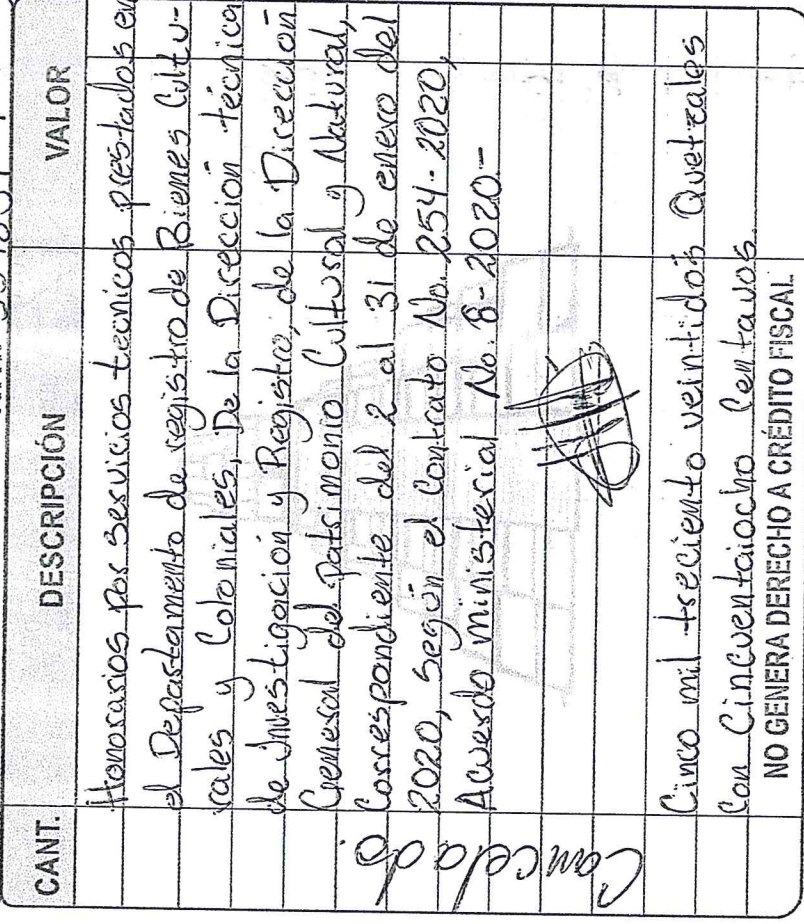 CANT. DESCRIPCIÓN VALOR
Honorarios por Servicios técnicos prestados en
el Departamento de registro de Bienes Cultu-
rales y Coloniales, De la Dirección técnica
de Investigación y Registro, de la Dirección
General del patrimonio Cultural y Natural,
Correspondiente del 2 al 31 de enero del
2020, según el Contrato No. 254-2020,
Acuerdo ministerial No. 8-2020-
Cancelado.
Cinco mil treseciento veintidos Quetzales
Con Cincuentaiocho Centavos
NO GENERA DERECHO A CRÉDITO FISCAL